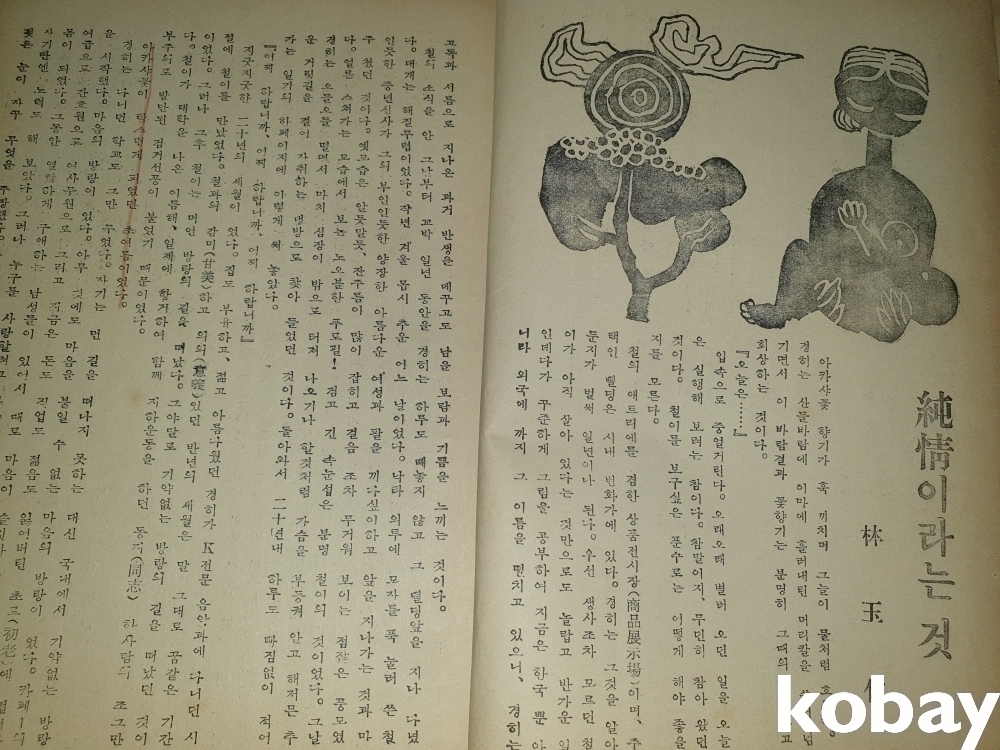 純情이라는 것
林玉
아카샤꽃 향기가 훅 끼치며 그늘이 물처럼
경히는 산들바람에 이마에 흘러내린 머리칼을
기면서 이 바람결과 꽃향기는 분명히 그때의
회상하는 것이다.
『오늘은……』
입속으로 중얼거린다. 오래오래 별러 오던 일을 오늘
은 실행해 보려는 참이다. 참말이지, 무던히 참아 왔던
것이다. 철이를 보구싶은 푼수로는 어떻게 해야 좋을
지를 모른다.
철의 애트리에를 겸한 상품전시장(商品展示場)이며, 주
택인 빌딩은 시내 번화가에 있다. 경히는 그것을 알아
둔지가 벌써 일년이나 된다. 우선 생사조차 모르던 철
이가 아직 살아 있다는 것만으로도 놀랍고 반가운
인데다가 꾸준하게 그림을 공부하여 지금은 한국 뿐 아
니라 외국에 까지 그 이름을 떨치고 있으니, 경히는
고독과 서름으로 지나온 과거 반생은 메꾸고도 남을 보람과 기쁨을 느끼는 것이다.
철의 소식을 안 그날부터 꼬박 일년 동안을 경히는 하루도 빼놓지 않고 그 빌딩앞을 지나 다녔
다. 대개는 해질무렵이었다. 작년 겨울 몹시 추운 어느 날이었다. 낙타 외투에 모자를 푹 눌러 쓴 철
인듯한 중년신사가 그의 부인인듯한 양장한 아름다운 여성과 팔을 끼다싶이하고 앞을 지나가는 것과 마
주 쳤던 것이다. 옛모습은 알듯말듯, 잔주름이 많이 잡히고 걸음 조차 무거워 보이는 점잖은 풍모였
다. 얼른 스쳐가는 모습에서 보는 노오불한 푸로필! 검고 긴 속눈섭은 분명 철이의 것이었다. 그날
경히는 오들오들 떨면서 마치 심장이 밖으로 터저 나오기나 할것처럼 가슴을 부둥켜 안고 해저믄 추
운 거릿길을 걸어 자취하는 냉방으로 찾아 들었던 것이다. 돌아와서 二十년내 하루도 빠짐없이 적어
가는 일기의 하페이지에 이렇게 써 놓았다.
『어찌 하랍니까、어찌 하랍니까、어찌 하랍니까』
지긋지긋한 二十년의 세월이 었다. 집도 부유하고、젊고 아름다웠던 경히가 K전문 음악과에 다니던 시
절에 철이를 만났었다. 철과의 감미(甘美)하고 의의(意義)있던 반년의 세월은 말 그대로 꿈같은 기간
이었다. 그러나 그후 철이는 먼 방랑의 길을 떠났다. 그야말로 기약없는 방랑의 길을 떠났던 것이
다. 철이가 대학을 나온 이듬해、일제에 항거하여 함께 지하운동을 하던 동지(同志) 하사람의 조그만
부주의로 발단된 검거선풍이 불었기 때문이었다.
아카샤꽃이 탐스럽게 피였던 초여름이었다.
경히는 다니던 학교도 그만 두었다. 자기는 먼 길을 떠나지 못하는 대신 국내에서 기약없는 방랑
을 시작했다. 마음의 방랑이 었다. 아무 것에도 마음을 붙일 수 없는 마음의 방랑이 었다. 카페ー의
여급으로 간호원으로 여사무원으로 그리고 지금은 돈도 직업도 젊음도 잃어버린 초로(初老)에
몸이 되었다. 그동안 열렬하게 구애하는 남성들이 있어서 때로 마음이
자기딴엔 노력도 해 보았다. 그러나 누구를 사랑할려고
짖은 눈이 자꾸 무엇을 주장했다.
kobay